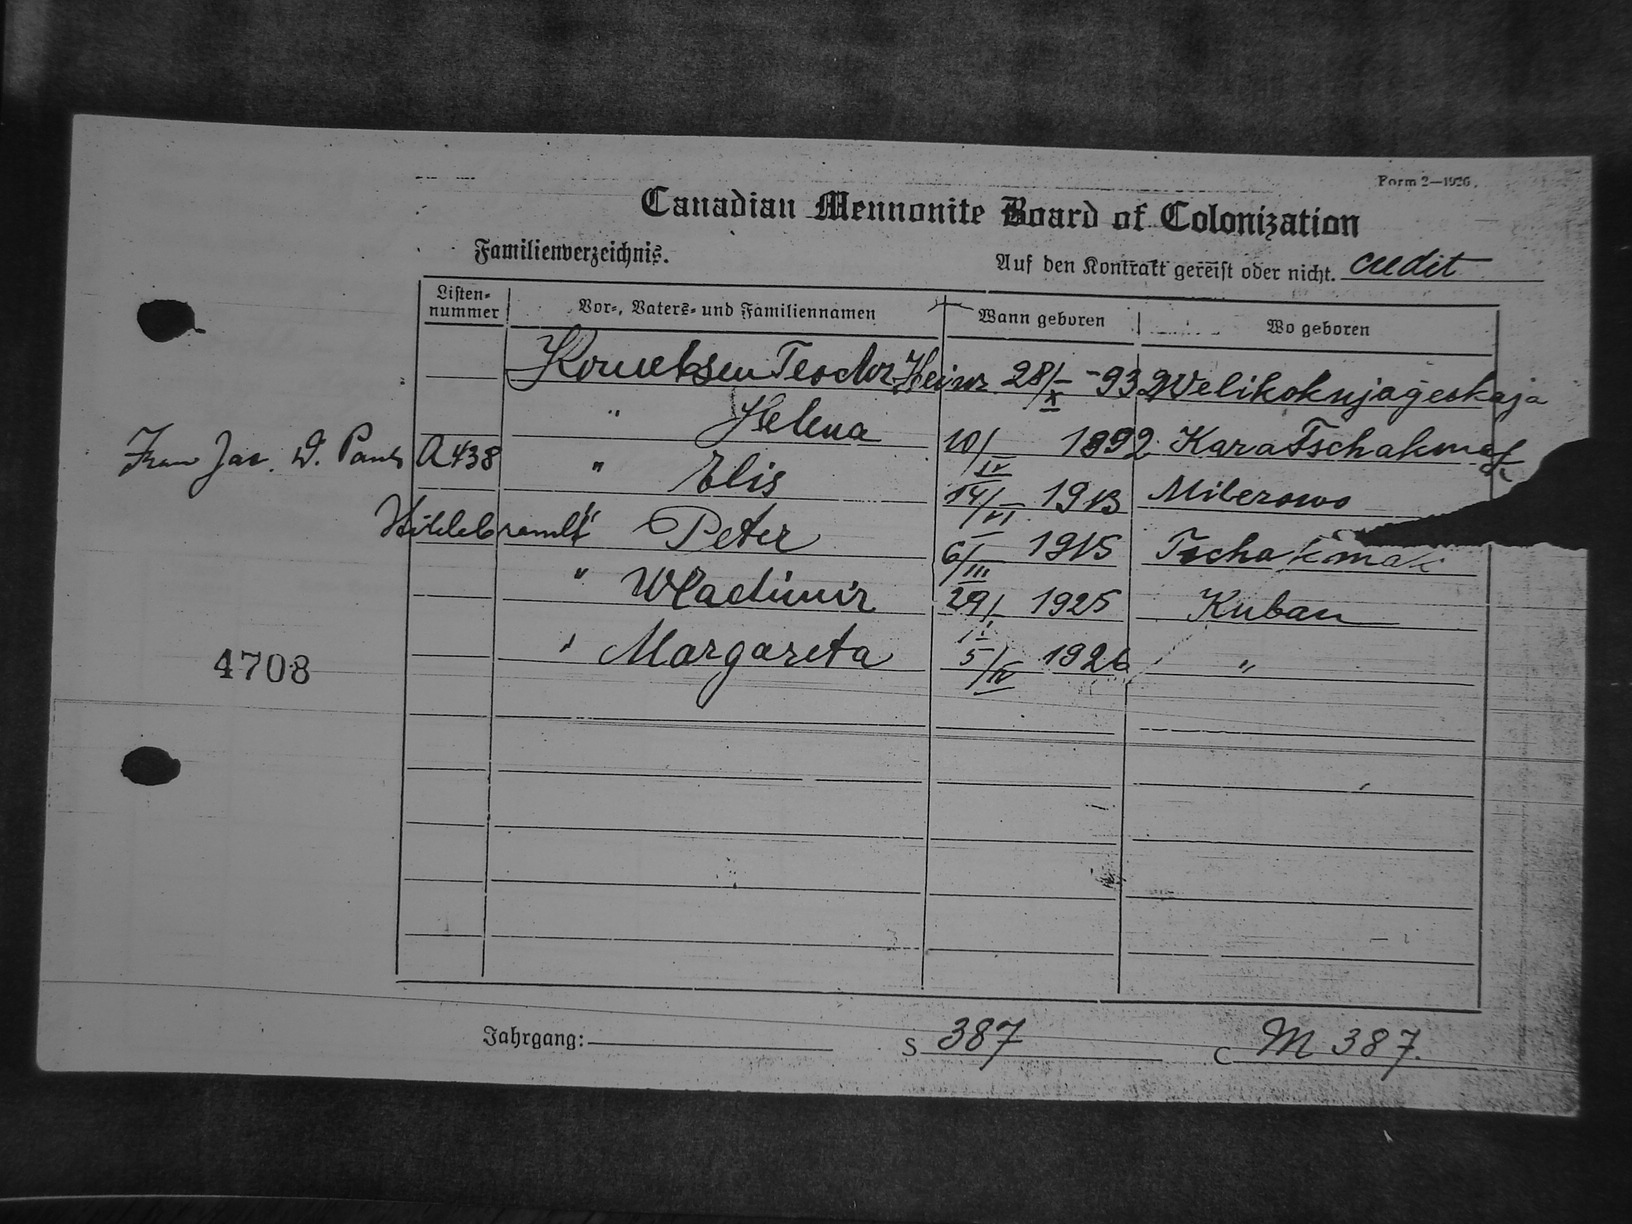 Form 2—1926.
Canadian Mennonite Board of Colonization
Familienverzeichnis.
Auf den Kontrakt gereist oder nicht. credit
Listen-nummer Vor-, Vaters- und Familiennamen Wann geboren Wo geboren
Kornelsen Teodor Heinr. 28/X Welikoknjageskaja
" Helena 10/IV 1892 Kara Tschakmak
Frau Jac. D. Pauls A438 " Elis 14/VI 1913 Milerowo
Hildebrandt " Peter 6/III 1915 Tschakmak
" Wladimir 29/ 1925 Kuban
" Margareta 5/IV 1926 "
4708
Jahrgang: S 387 C M 387.